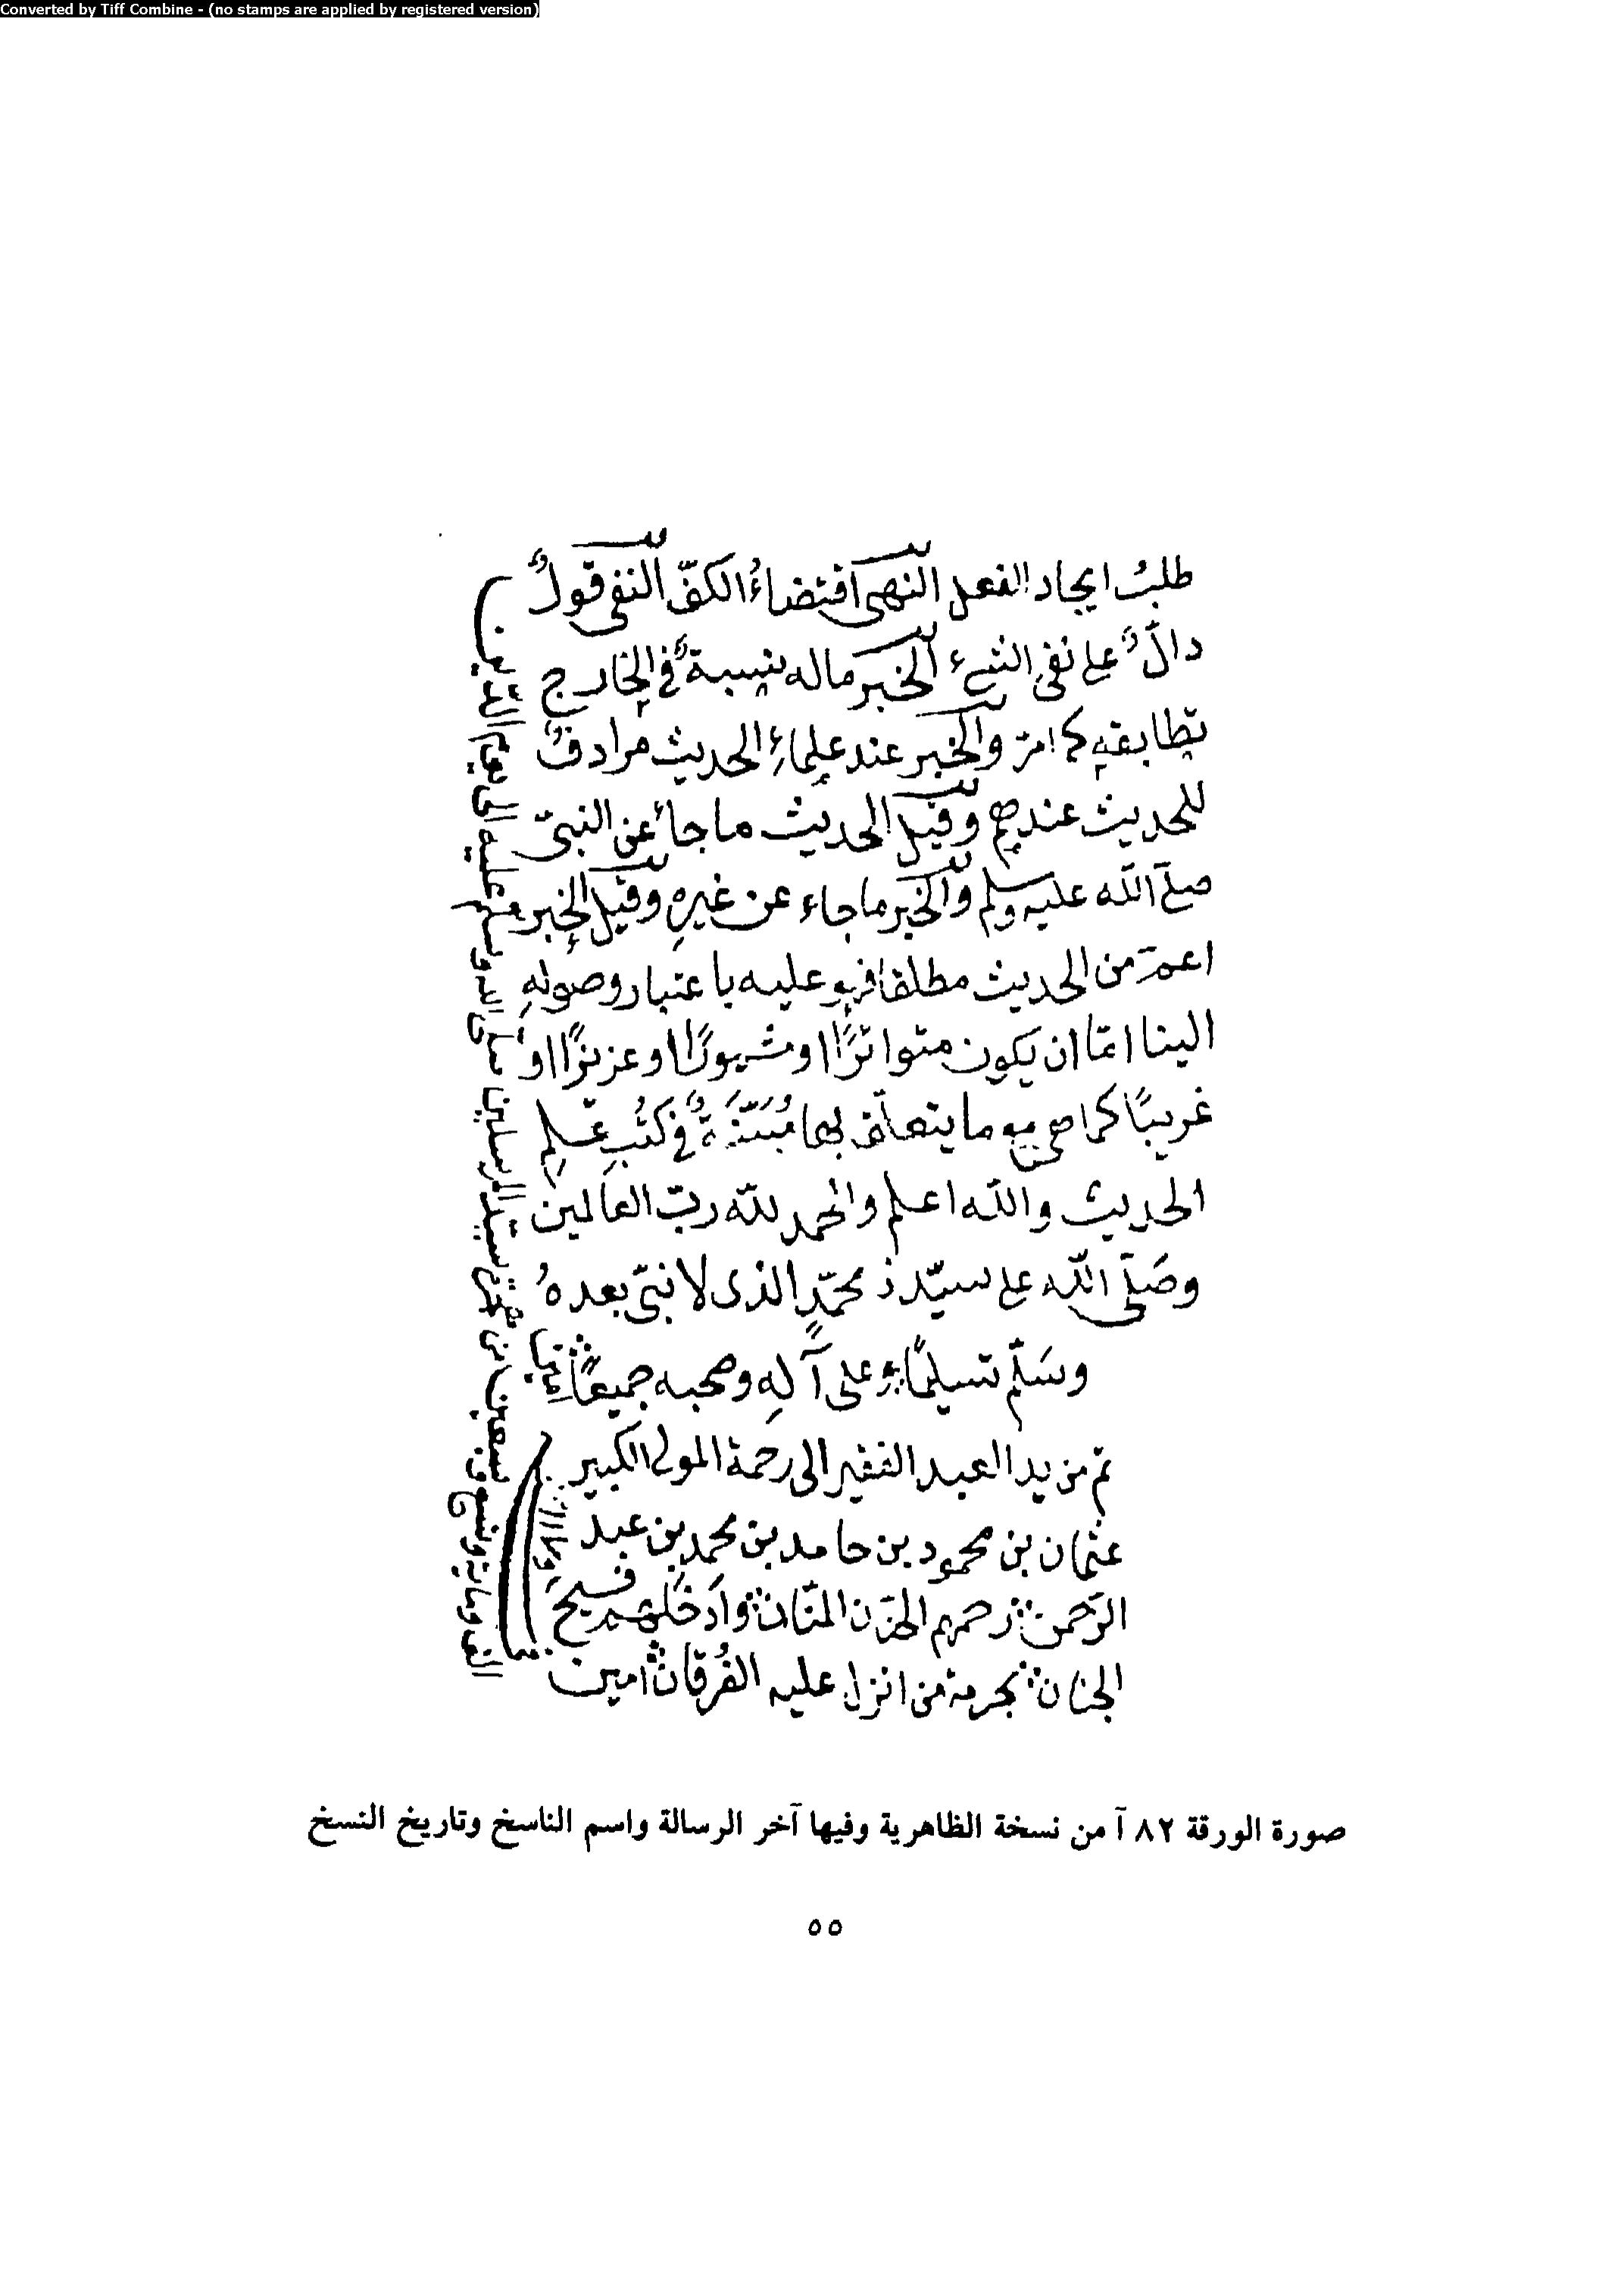 Converted by Tiff Combine - (no stamps are applied by registered version)
طلبُ ايجاد الفعل النهى اقتضاءُ الكفّ النفى قولٌ
دالٌّ على نفى الشئ الخبر ماله نسبةٌ فى الخارج
تطابقه كما مرّ والخبر عند علماءِ الحديث مرادفٌ
للحديث عندهم وقيل الحديث ما جاء عن النبىّ
صلى الله عليه وسلم والخبر ما جاء عن غيرهِ وقيل الخبر
اعمّ من الحديث مطلقا فهو عليه باعتبار وصولهِ
الينا امّا ان يكون متواترًا او مشهورًا او عزيزًا او
غريبًا كما هى مع ما يتعلّق بها مُبَيَّنَةٌ فى كتُبِ علم
الحديث والله اعلم والحمد لله ربّ العالمين
وصَلّى الله على سيّدنا محمّدٍ الذى لا نبىّ بعدهُ
وسَلّم تسليمًا وعلى آلهِ وصحبه جميعًا
تمّ من يد العبد الفقير الى رحمة المولى الكبير
عثمان بن محمود بن حامد بن محمد بن عبد
الرّحمن رحمهم المنّان وادخلهم فسيح
الجنان بحرمة من انزل عليه الفُرقان امين
سبعين من هجرة سيّد المرسلين صلى الله وسلم عليه الى يوم الدّين
صورة الورقة ٨٢ آ من نسخة الظاهرية وفيها آخر الرسالة واسم الناسخ وتاريخ النسخ
٥٥